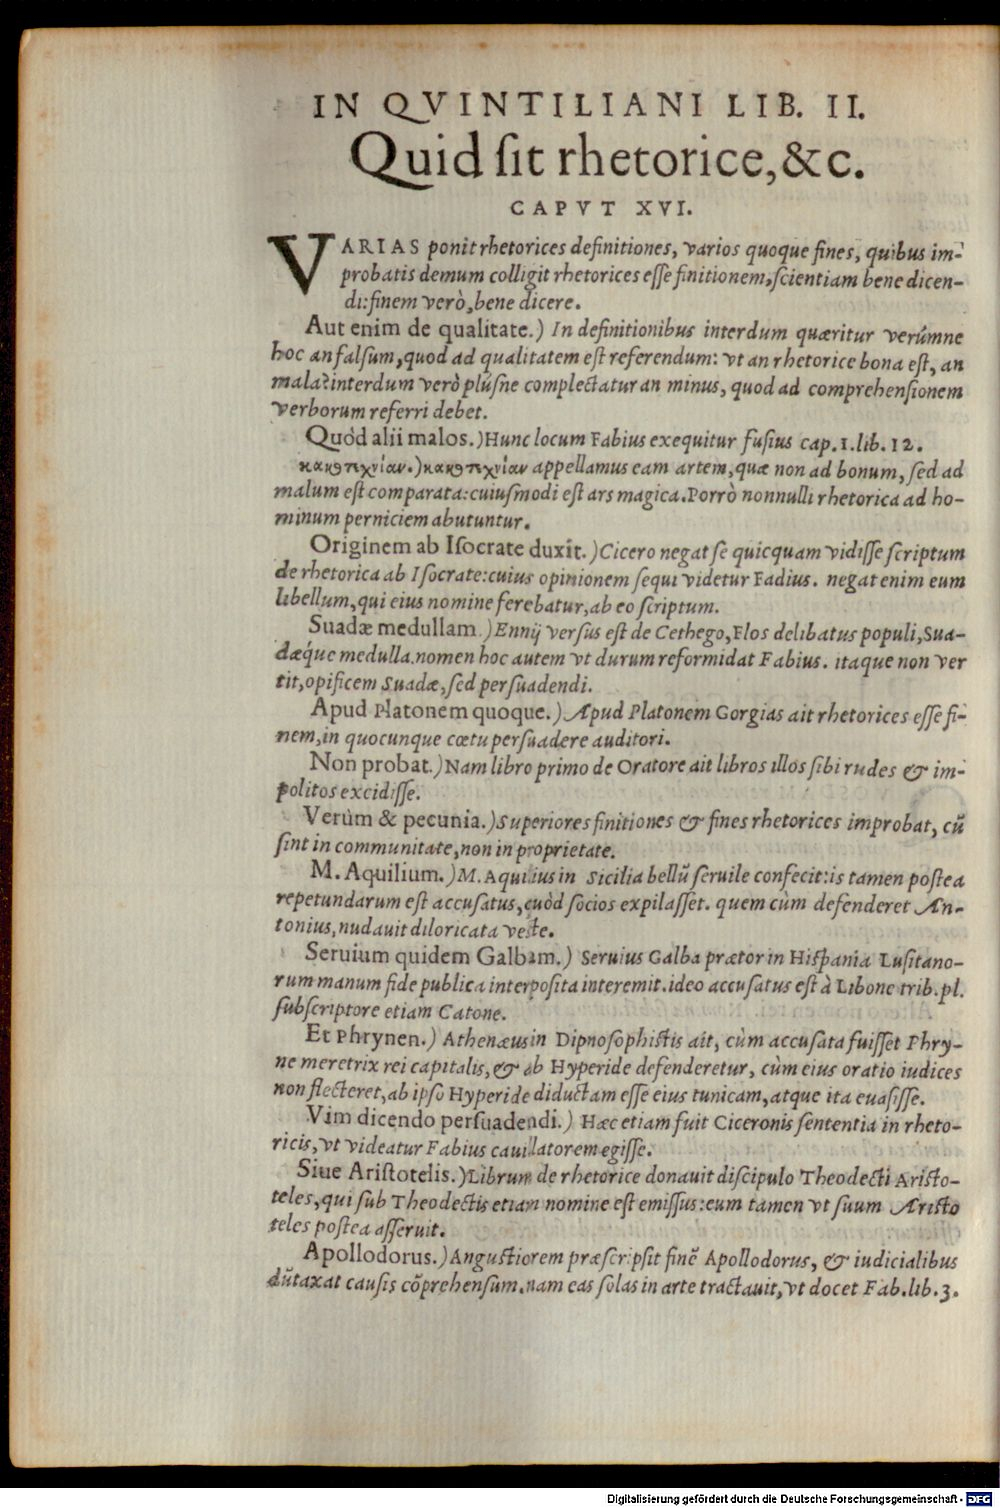 IN QVINTILIANI LIB. II.
Quid ſit rhetorice, &c.
CAPVT XVI.
VARIAS ponit rhetorices definitiones, varios quoque fines, quibus im-
probatis demum colligit rhetorices eſſe finitionem, ſcientiam bene dicen-
di: finem verò, bene dicere.
Aut enim de qualitate.) In definitionibus interdum quæritur verúmne
hoc an falſum, quod ad qualitatem eſt referendum: vt an rhetorice bona eſt, an
mala? interdum verò plúſne complectatur an minus, quod ad comprehenſionem
verborum referri debet.
Quòd alii malos.) Hunc locum Fabius exequitur fuſius cap. 1. lib. 12.
κακοτεχνίαν.) κακοτεχνίαν appellamus eam artem, quæ non ad bonum, ſed ad
malum eſt comparata: cuiuſmodi eſt ars magica. Porrò nonnulli rhetorica ad ho-
minum perniciem abutuntur.
Originem ab Iſocrate duxit.) Cicero negat ſe quicquam vidiſſe ſcriptum
de rhetorica ab Iſocrate: cuius opinionem ſequi videtur Fadius. negat enim eum
libellum, qui eius nomine ferebatur, ab eo ſcriptum.
Suadæ medullam.) Ennij verſus eſt de Cethego, Flos delibatus populi, Sua-
dæque medulla. nomen hoc autem vt durum reformidat Fabius. itaque non ver
tit, opificem Suadæ, ſed perſuadendi.
Apud Platonem quoque.) Apud Platonem Gorgias ait rhetorices eſſe fi-
nem, in quocunque cœtu perſuadere auditori.
Non probat.) Nam libro primo de Oratore ait libros illos ſibi rudes & im-
politos excidiſſe.
Verùm & pecunia.) Superiores finitiones & fines rhetorices improbat, cũ
ſint in communitate, non in proprietate.
M. Aquilium.) M. Aquilius in Sicilia bellũ ſeruile confecit: is tamen poſtea
repetundarum eſt accuſatus, quòd ſocios expilaſſet. quem cùm defenderet An-
tonius, nudauit diloricata veſte.
Seruium quidem Galbam.) Seruius Galba prætor in Hiſpania Luſitano-
rum manum fide publica interpoſita interemit. ideo accuſatus eſt à Libone trib. pl.
ſubſcriptore etiam Catone.
Et Phrynen.) Athenæus in Dipnoſophiſtis ait, cùm accuſata fuiſſet Phry-
ne meretrix rei capitalis, & ab Hyperide defenderetur, cùm eius oratio iudices
non flecteret, ab ipſo Hyperide diductam eſſe eius tunicam, atque ita euaſiſſe.
Vim dicendo perſuadendi.) Hæc etiam fuit Ciceronis ſententia in rheto-
ricis, vt videatur Fabius cauilatorem egiſſe.
Siue Ariſtotelis.) Librum de rhetorice donauit diſcipulo Theodecti Ariſto-
teles, qui ſub Theodectis etiam nomine eſt emiſſus: eum tamen vt ſuum Ariſto
teles poſtea aſſeruit.
Apollodorus.) Anguſtiorem præſcripſit finẽ Apollodorus, & iudicialibus
dũtaxat cauſis cõprehenſum. nam eas ſolas in arte tractauit, vt docet Fab. lib. 3.
Digitalisierung gefördert durch die Deutsche Forschungsgemeinschaft - DFG